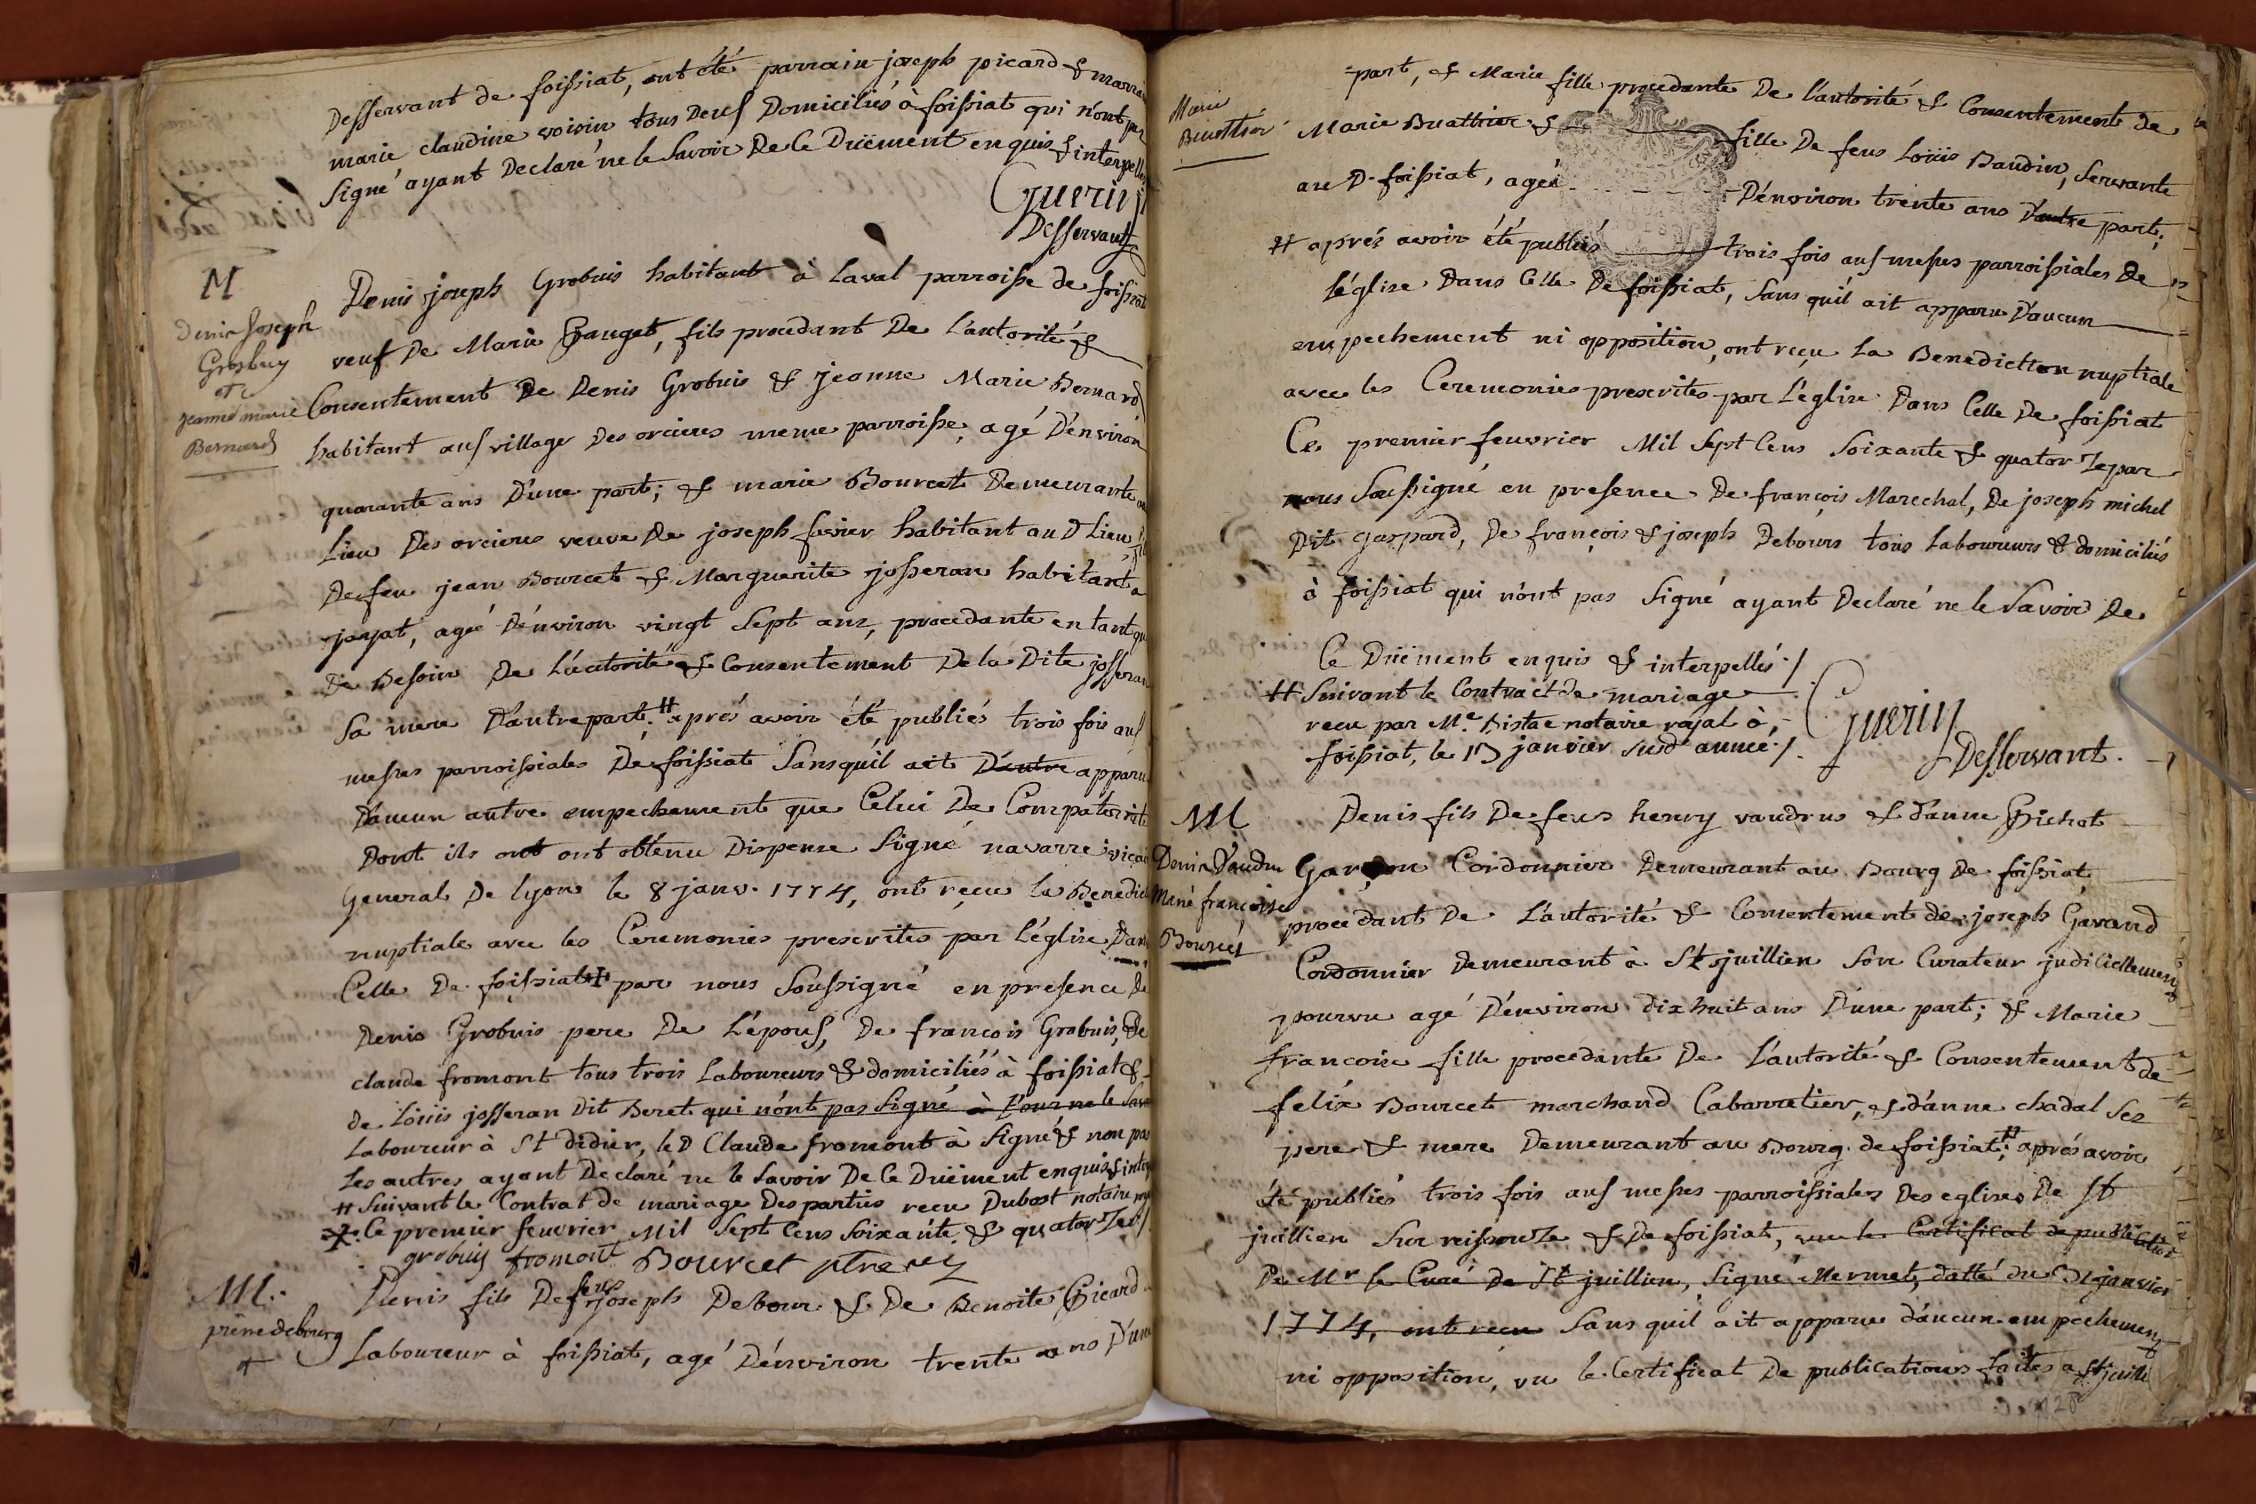 Desservant de foissiat, ont été parrain joseph picard & marrai
marie claudine voisin tous Deus Domiciliés à foissiat qui n'ont pas
signé ayant Declaré ne le savoir De Ce Düement enquis & interpellés
Guerin
Desservant
M
Denis Joseph
Grosbuy
et
jeanne marie
Bernard
Denis joseph Grobuis habitant à Laval parroisse de foissiat
veuf De Marie Gauget, fils procedant De L'autorité &
Consentement De Denis Grobuis & jeanne Marie Bernard
habitant aus village Des orcieres meme parroisse, agé D'environ
quarante ans D'une part; & marie Bourcet Demeurante au
Lieu Des orcieres veuve De joseph favier habitant au D Lieu, fil
De feu jean Bourcet & Marguerite josseran habitant a
jayat, agée D'environ vingt sept ans, procedante en tant que
De Besoin De L'autorité & Consentement De la Dite josseran
sa mere D'autre part; # aprés avoir été publiés trois fois aus
messes parroissiales De foissiat sans quil ait D'autre apparu
D'aucun autre empechement que Celui De Compaternité
Dont ils ont ont obtenu Dispense signé navarre vicaire
General De lyon le 8 janv. 1774, ont reçu la Benedict
nuptiale avec les Ceremonies prescrites par L'église Dans
Celle De foissiat ‡ par nous soussigné en presence De
Denis Grobuis pere De L'épous, De françois Grobuis, De
claude fromont tous trois Laboureurs & domiciliés à foissiat &
de Loüis josseran Dit Beret qui n'ont pas signé
Laboureur à St didier, le D Claude fromont à signé & non pas
les autres ayant Declaré ne le savoir De Ce Düement enquis & inter
# suivant le Contrat de mariage Des parties recu Dubost notaire
‡ Ce premier feuvrier Mil sept Cens soixante & quatorze ./.
grobuis fromont Bourcet ptre
M.
pierre debourg
et
Denis fils De feus joseph Debour & De Benoite Picard
Laboureur à foissiat, agé D'environ trente ans D'une
Marie
Buattier
part, & Marie fille procedante De L'autorité & Consentement de
Marie Buattier & fille De feus Loüis Baudin, servante
au D. foissiat, agée D'environ trente ans D'autre part;
# aprés avoir été publiés trois fois aus messes parroissiales De
L'église Dans Celle De foissiat, sans qu'il ait apparu D'aucun
empechement ni opposition, ont reçu la Benediction nuptiale
avec les Ceremonies prescrites par L'église Dans Celle De foissiat
Ce premier feuvrier Mil sept Cens soixante & quatorze par
nous soussigné en presence De françois Marechal, De joseph michel
Dit gaspard, De françois & joseph Debours tous laboureurs & domiciliés
à foissiat qui n'ont pas signé ayant Declaré ne le savoir De
Ce Düement enquis & interpellés ./
# suivant le Contract de mariage
recu par Me. Distac notaire rojal à,
foissiat, le 13 janvier susd. année ./.
Guerin
Desservant.
M
Denis Vaudru
Marie françoise
Bourcet
Denis fils De feus henry vaudrus & d'anne Pichot
Garçon Cordonnier Demeurant au Bourg De foissiat
procedant De L'autorité & Consentement de joseph Gevand
Cordonnier Demeurant à St juillien son Curateur judiciellement
pourvu agé D'environ dix huit ans D'une part; & Marie
francoise fille procedante De L'autorité & Consentement de
felix Bourcet marchand Cabarretier, & d'anne chadal ses
pere & mere Demeurant au Bourg de foissiat; # aprés avoir
été publiés trois fois aus messes parroissiales Des eglises De St
juillien sur reissouze & De foissiat, vu le Certificat de publication
De Mr le Curé de St juillien, signé Mermet, datté du 31 janvier
1774, ont recu sans quil ait apparu d'aucun empechement
ni opposition, vu le Certificat De publications faites a St juilli
128